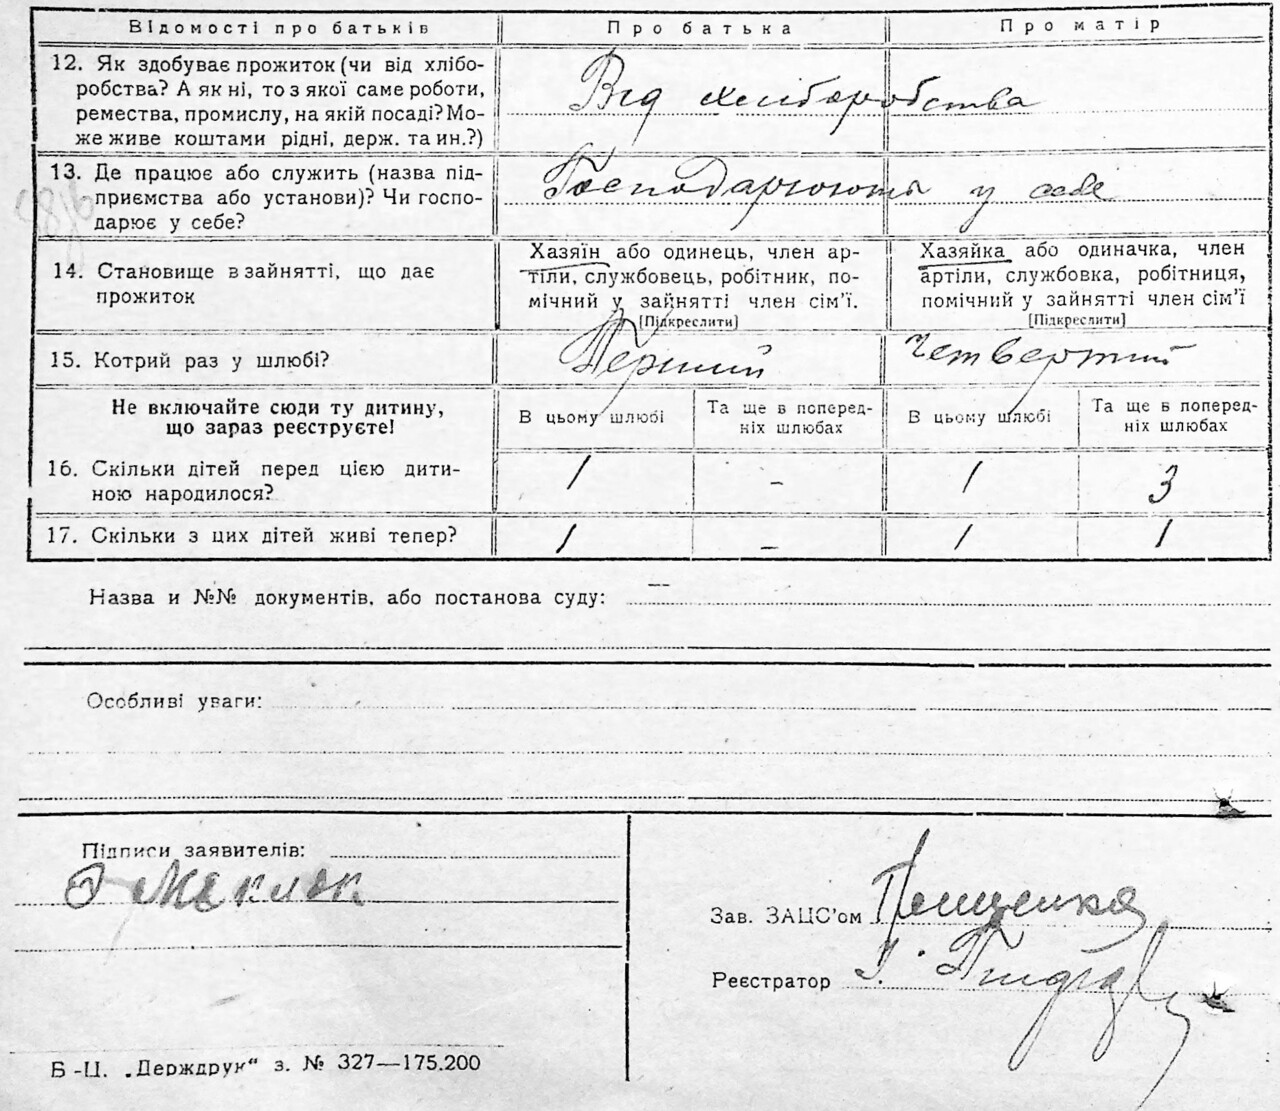 Відомості про батьків Про батька Про матір
12. Як здобуває прожиток (чи від хлібо-
робства? А як ні, то з якої саме роботи,
ремества, промислу, на якій посаді? Мо-
же живе коштами рідні, держ. та ин.?)
Від хліборобства
13. Де працює або служить (назва під-
приємства або установи)? Чи госпо-
дарює у себе?
Господарюють у себе
14. Становище в зайнятті, що дає
прожиток
Хазяїн або одинець, член ар-
тіли, службовець, робітник, по-
мічний у зайнятті член сім'ї.
[Підкреслити]
Хазяйка або одиначка, член
артіли, службовка, робітниця,
помічний у зайнятті член сім'ї
[Підкреслити]
15. Котрий раз у шлюбі? Перший Четвертий
Не включайте сюди ту дитину,
що зараз реєструєте!
В цьому шлюбі
Та ще в поперед-
ніх шлюбах
В цьому шлюбі
Та ще в поперед-
ніх шлюбах
16. Скільки дітей перед цією дити-
ною народилося?
1 - 1 3
17. Скільки з цих дітей живі тепер? 1 - 1 1
Назва и №№ документів, або постанова суду: —
Особливі уваги:
Підписи заявителів:
Зав. ЗАЦС'ом
Реєстратор
Б-Ц. „Держдрук“ з. № 327—175.200